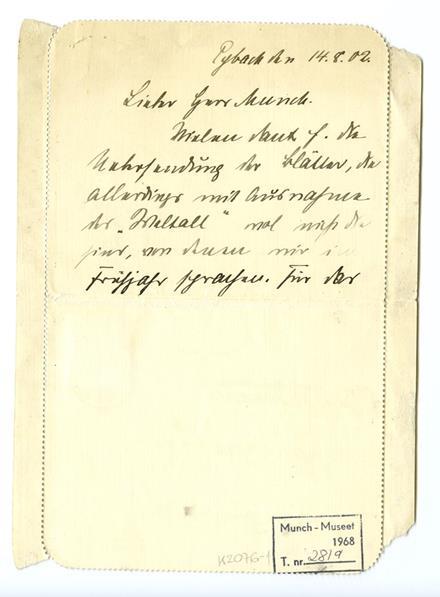 Eybach den 14.8.02.
Lieber Herr Munch.
Vielen Dank f. die
Uebersendung der Blätter, die
allerdings mit Ausnahme
des „Weltall“ wol nicht die
sind, von denen wir im
Frühjahr sprachen. Für das
Munch - Museet
1968
T. nr. 2819
K2076-1